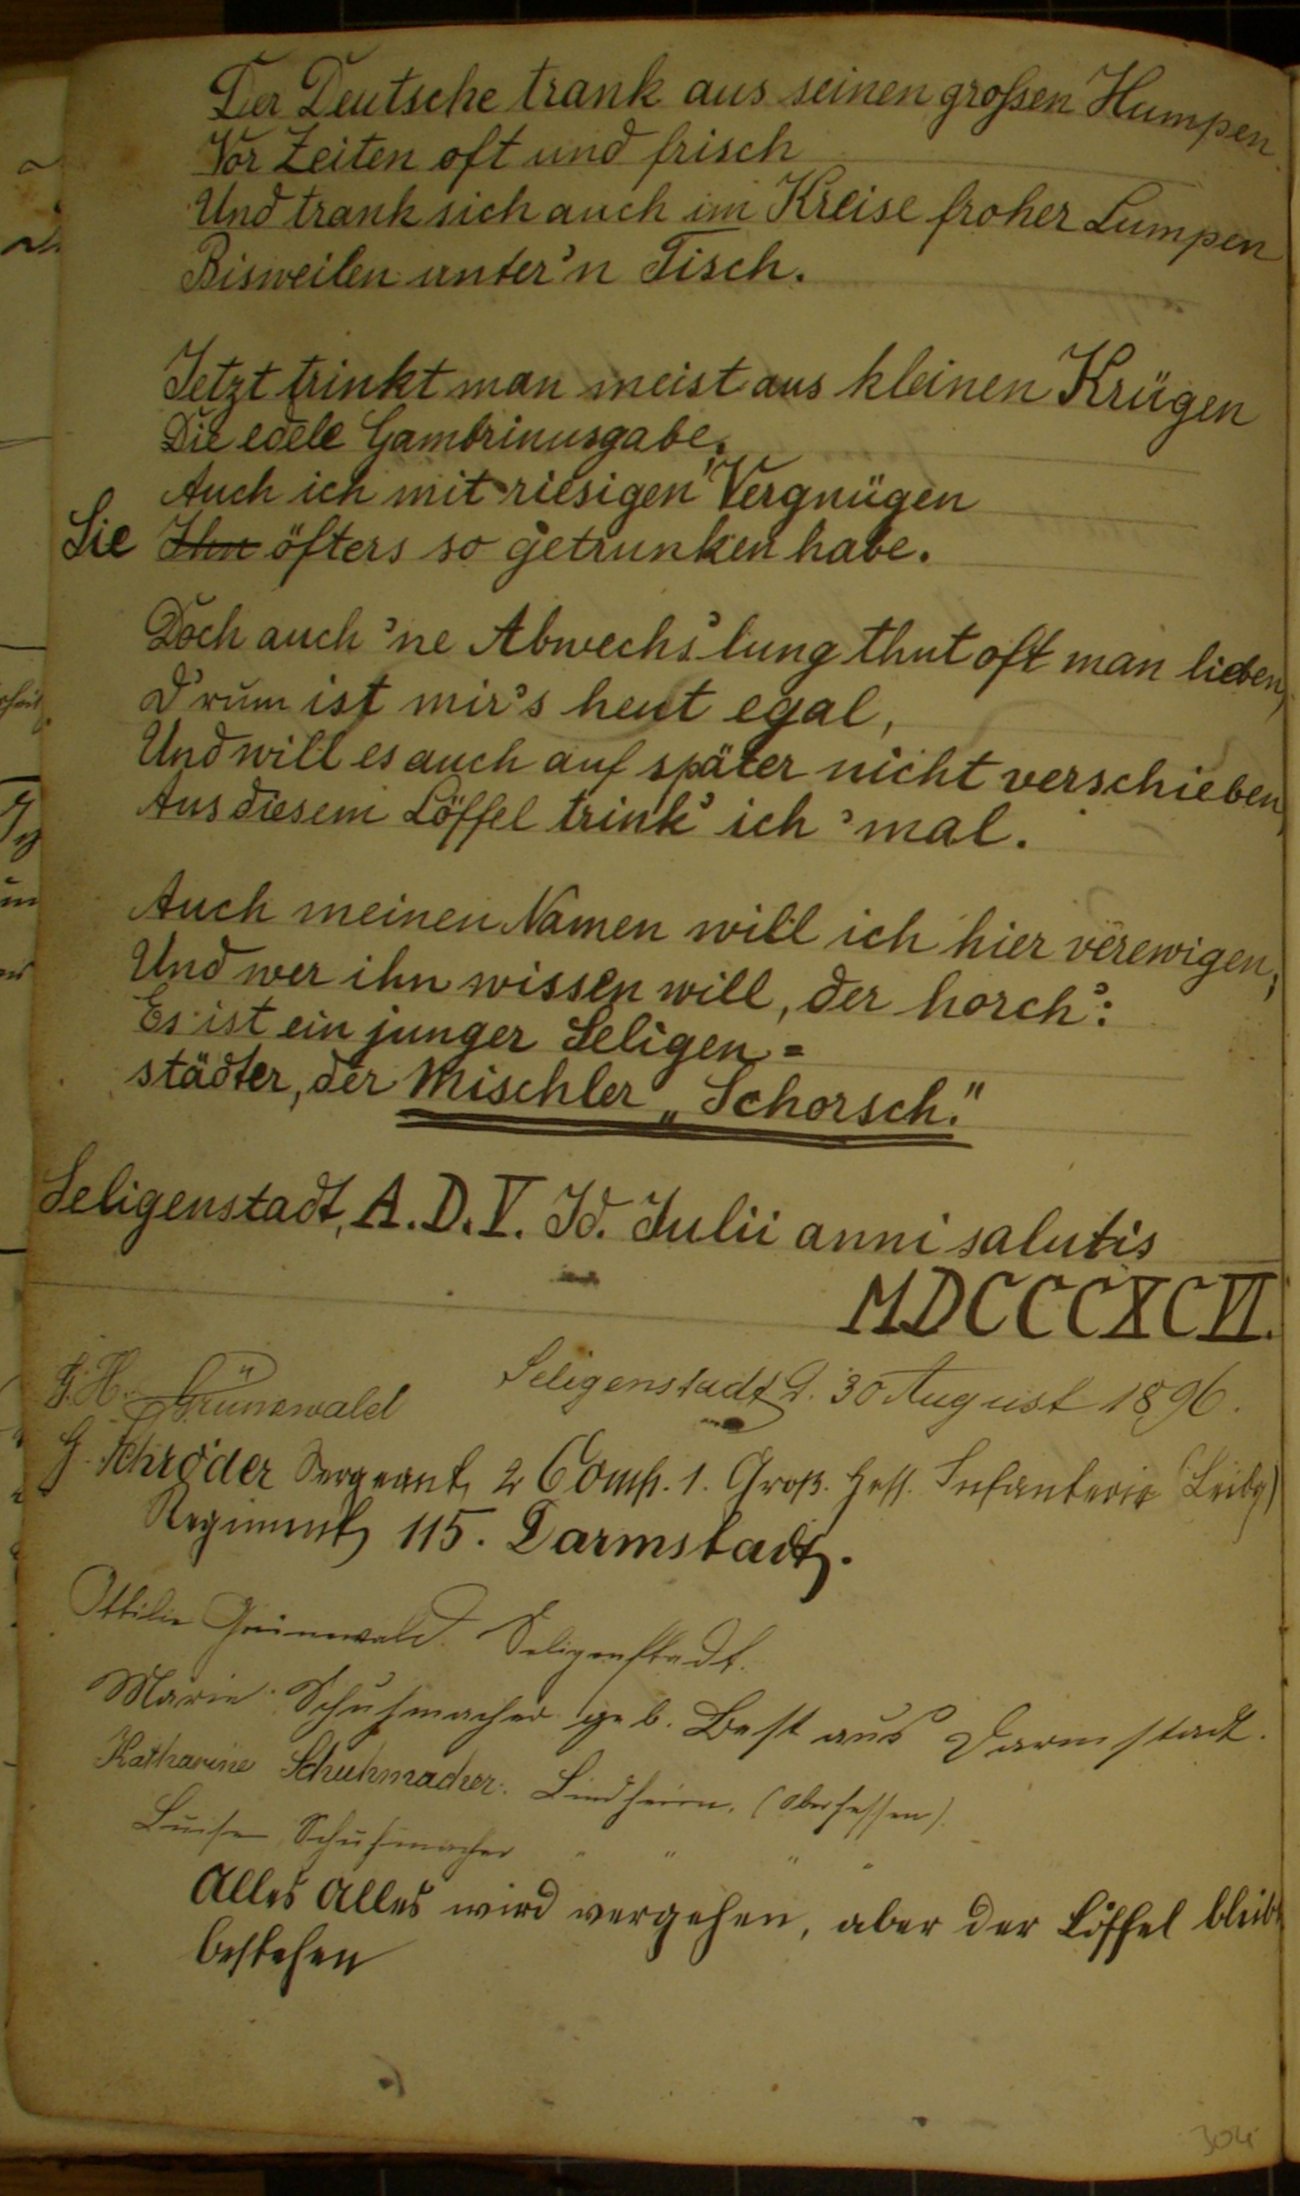 Der Deutsche trank aus seinen großen Humpen
Vor Zeiten oft und frisch
Und trank sich auch im Kreise froher Lumpen
Bisweilen unter'n Tisch.
Jetzt trinkt man meist aus kleinen Krügen
Die edele Gambrinusgabe,
Auch ich mit riesigen Vergnügen
Sie Ihn öfters so getrunken habe.
Doch auch 'ne Abwechs'lung thut oft man lieben,
D'rum ist mir's heut egal,
Und will es auch auf später nicht verschieben,
Aus diesem Löffel trink' ich 'mal.
Auch meinen Namen will ich hier verewigen,
Und wer ihn wissen will, der horch':
Es ist ein junger Seligen=
städter, der Mischler „Schorsch."
Seligenstadt, A. D. V. Id. Julii anni salutis
MDCCCXCVI.
Seligenstadt d. 30 August 1896.
G. H. Grünewald
G. Schröder Sergeant, 2 Comp. 1. Groß. Hess. Infanterie (Leibg)
Regiment 115. Darmstadt.
Ottilie Grünewald. Seligenstadt.
Marie Schuhmacher geb. Best aus Darmstadt.
Katharine Schuhmacher. Lindheim. (Oberhessen).
Luise Schuhmacher " " " "
Alles Alles wird vergehen, aber der Löffel bleibt
bestehen
304